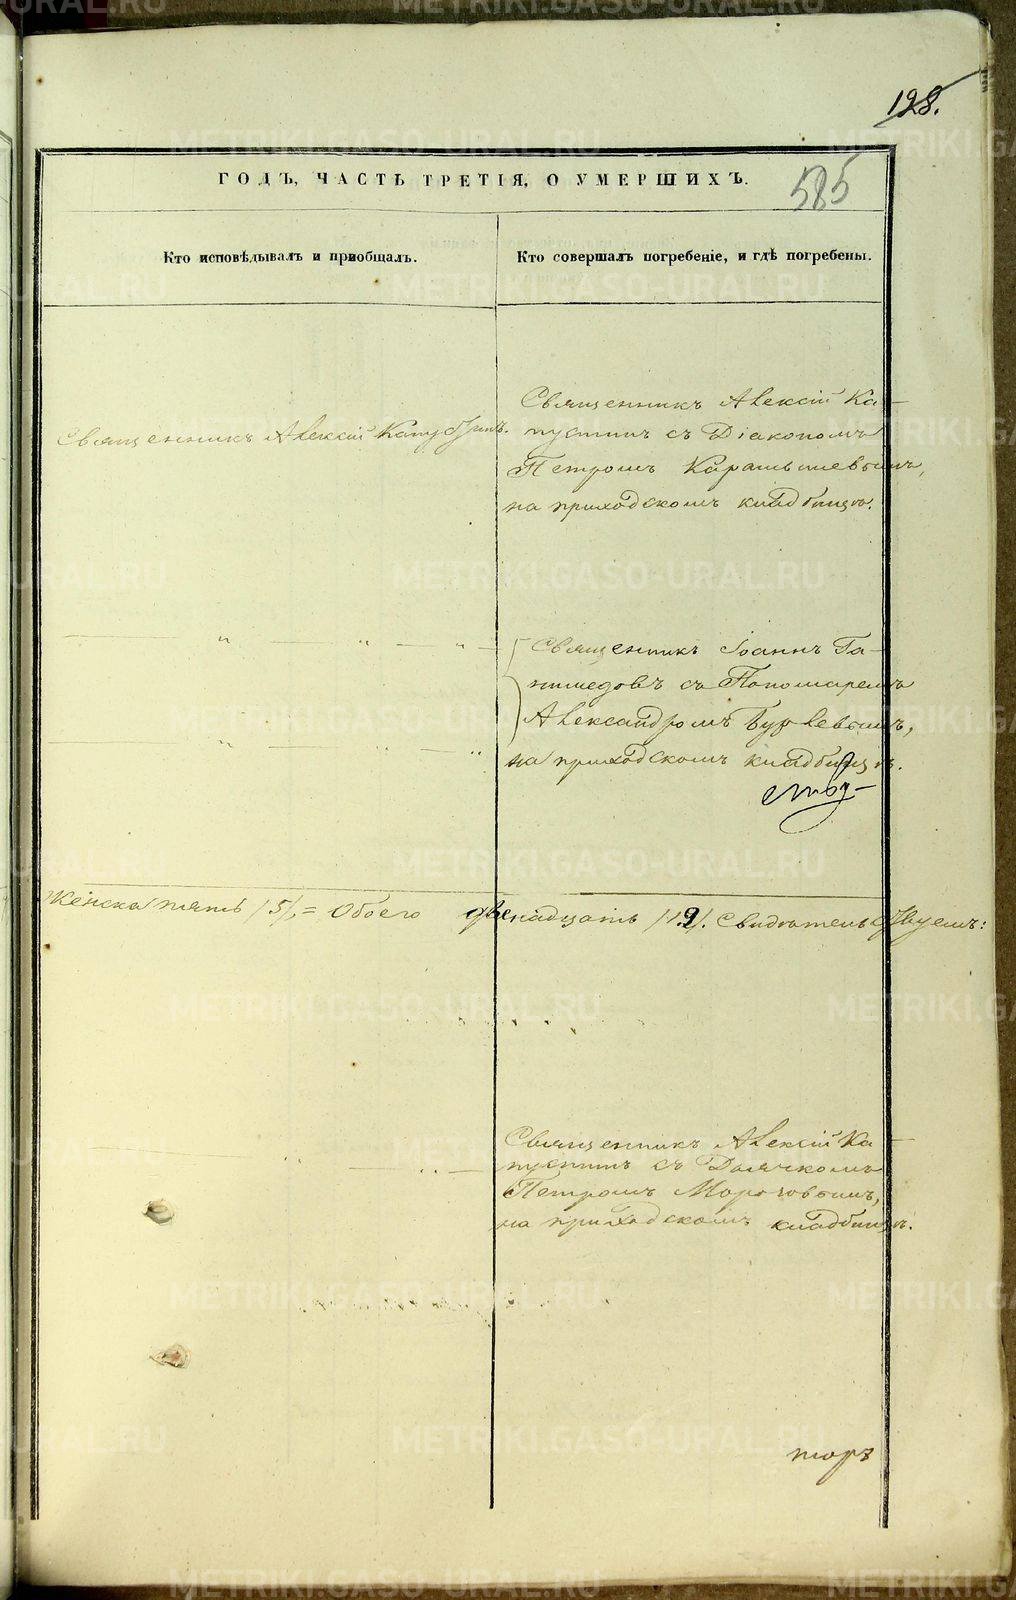 128.
585
ГОДЪ, ЧАСТЬ ТРЕТІЯ, О УМЕРШИХЪ.
Кто исповѣдывалъ и пріобщалъ.
Кто совершалъ погребеніе, и гдѣ погребены.
Священникъ Алексій Капустинъ.
Священникъ Алексій Ка-
пустинъ съ Діакономъ
Петромъ Карамышевымъ,
на приходскомъ кладбищѣ.
Священникъ Іоаннъ Га-
нимедовъ съ Пономаремъ
Александромъ Бурлевымъ,
на приходскомъ кладбищѣ.
Женска пять /5/, = Обоего двенадцать /12/. Свидѣтельствуемъ:
Священникъ Алексій Ка-
пустинъ съ Дьячкомъ
Петромъ Морозовымъ,
на приходскомъ кладбищѣ.
торъ
METRIKI.GASO-URAL.RU